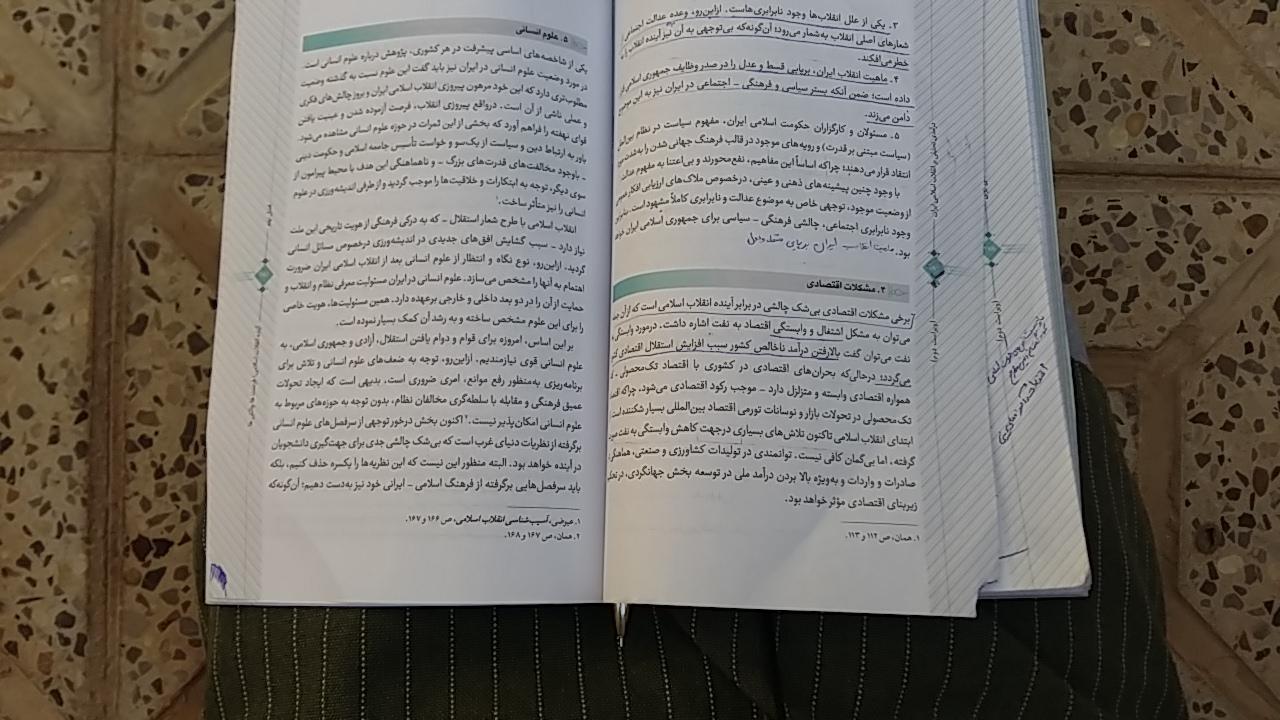 ۳. یکی از علل انقلاب‌ها وجود نابرابری‌هاست. ازاین‌رو، وعده عدالت اجتماعی
شعارهای اصلی انقلاب به‌شمار می‌رود؛ آن‌گونه‌که بی‌توجهی به آن نیز آینده انقلاب را
خطر می‌افکند.
۴. ماهیت انقلاب ایران، برپایی قسط و عدل را در صدر وظایف جمهوری اسلامی
داده است؛ ضمن آنکه بستر سیاسی و فرهنگی - اجتماعی در ایران نیز به این موضوع
دامن می‌زند.
۵. مسئولان و کارگزاران حکومت اسلامی ایران، مفهوم سیاست در نظام
(سیاست مبتنی بر قدرت) و رویه‌های موجود در قالب فرهنگ جهانی شدن را به‌شدت
انتقاد قرار می‌دهند؛ چراکه اساساً این مفاهیم، نفع‌محورند و بی‌اعتنا به مفهوم عدالت
با وجود چنین پیشینه‌های ذهنی و عینی، درخصوص ملاک‌های ارزیابی افکار
از وضعیت موجود، توجهی خاص به موضوع عدالت و نابرابری کاملاً مشهود است.
وجود نابرابری اجتماعی، چالشی فرهنگی - سیاسی برای جمهوری اسلامی ایران
بود.
ماهیت انقلاب ایران برپایی
۴. مشکلات اقتصادی
برخی مشکلات اقتصادی بی‌شک چالشی در برابر آینده انقلاب اسلامی است که از آن
می‌توان به مشکل اشتغال و وابستگی اقتصاد به نفت اشاره داشت. درمورد وابستگی
نفت می‌توان گفت بالارفتن درآمد ناخالص کشور سبب افزایش استقلال اقتصادی
می‌گردد؛ درحالی‌که بحران‌های اقتصادی در کشوری با اقتصاد تک‌محصولی -
همواره اقتصادی وابسته و متزلزل دارد - موجب رکود اقتصادی می‌شود، چراکه
تک‌محصولی در تحولات بازار و نوسانات تورمی اقتصاد بین‌المللی بسیار شکننده است
ابتدای انقلاب اسلامی تاکنون تلاش‌های بسیاری درجهت کاهش وابستگی به نفت
گرفته، اما بی‌گمان کافی نیست. توانمندی در تولیدات کشاورزی و صنعتی، هماهنگی
صادرات و واردات و به‌ویژه بالا بردن درآمد ملی در توسعه بخش جهانگردی، در
زیربنای اقتصادی مؤثر خواهد بود.
۱. همان، ص ۱۱۲ و ۱۱۳.
۵. علوم انسانی
یکی از شاخصه‌های اساسی پیشرفت در هر کشوری، پژوهش درباره علوم انسانی است.
در مورد وضعیت علوم انسانی در ایران نیز باید گفت این علوم نسبت به گذشته وضعیت
مطلوب‌تری دارد که این خود مرهون پیروزی انقلاب اسلامی ایران و بروز چالش‌های فکری
و عملی ناشی از آن است. درواقع پیروزی انقلاب، فرصت آزموده شدن و عینیت یافتن
قوای نهفته را فراهم آورد که بخشی از این ثمرات در حوزه علوم انسانی مشاهده می‌شود.
باور به ارتباط دین و سیاست از یک‌سو و خواست تأسیس جامعه اسلامی و حکومت دینی
- باوجود مخالفت‌های قدرت‌های بزرگ - و ناهماهنگی این هدف با محیط پیرامون از
سوی دیگر، توجه به ابتکارات و خلاقیت‌ها را موجب گردید و از طرفی اندیشه‌ورزی در علوم
انسانی را نیز متأثر ساخت.۱
انقلاب اسلامی با طرح شعار استقلال - که به درکی فرهنگی از هویت تاریخی این ملت
نیاز دارد - سبب گشایش افق‌های جدیدی در اندیشه‌ورزی درخصوص مسائل انسانی
گردید. ازاین‌رو، نوع نگاه و انتظار از علوم انسانی بعد از انقلاب اسلامی ایران ضرورت
اهتمام به آنها را مشخص می‌سازد. علوم انسانی در ایران مسئولیت معرفی نظام و انقلاب و
حمایت از آن را در دو بعد داخلی و خارجی برعهده دارد. همین مسئولیت‌ها، هویت خاصی
را برای این علوم مشخص ساخته و به رشد آن کمک بسیار نموده است.
بر این اساس، امروزه برای قوام و دوام یافتن استقلال، آزادی و جمهوری اسلامی، به
علوم انسانی قوی نیازمندیم. ازاین‌رو، توجه به ضعف‌های علوم انسانی و تلاش برای
برنامه‌ریزی به‌منظور رفع موانع، امری ضروری است. بدیهی است که ایجاد تحولات
عمیق فرهنگی و مقابله با سلطه‌گری مخالفان نظام، بدون توجه به حوزه‌های مربوط به
علوم انسانی امکان‌پذیر نیست.۲ اکنون بخش درخور توجهی از سرفصل‌های علوم انسانی
برگرفته از نظریات دنیای غرب است که بی‌شک چالشی جدی برای جهت‌گیری دانشجویان
در آینده خواهد بود. البته منظور این نیست که این نظریه‌ها را یکسره حذف کنیم، بلکه
باید سرفصل‌هایی برگرفته از فرهنگ اسلامی - ایرانی خود نیز به‌دست دهیم؛ آن‌گونه‌که
۱. عیوضی، آسیب‌شناسی انقلاب اسلامی، ص ۱۶۶ و ۱۶۷.
۲. همان، ص ۱۶۷ و ۱۶۸.